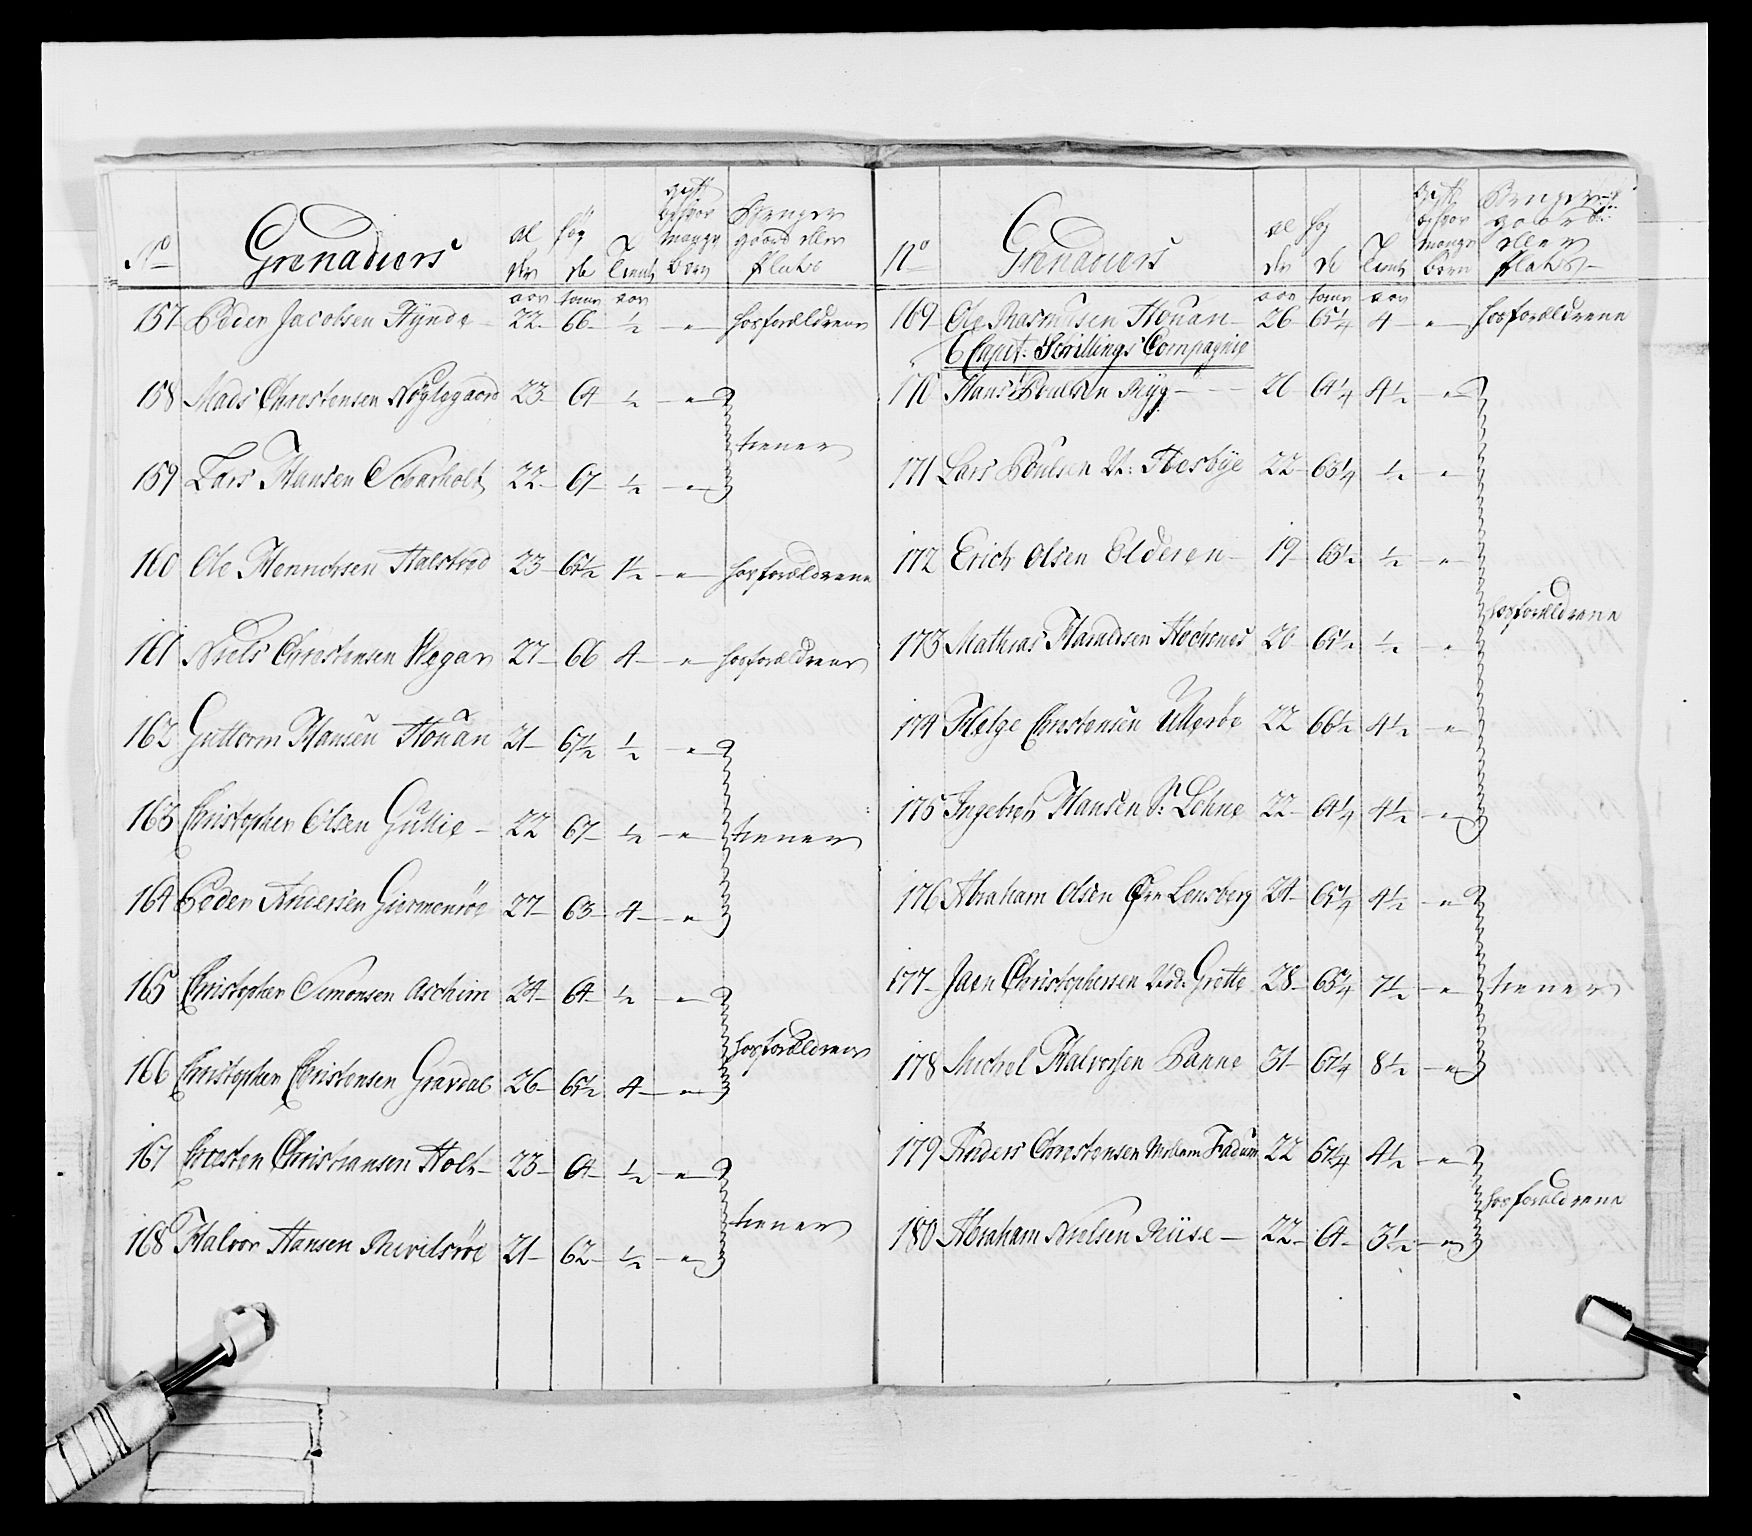 No Grenadiers al der høy de Tient gift hvor mange børn gaard eller Plats
aar tom aar
157 Peder Jacobsen Hynde 22 66 ½ " hos forældrene
158 Mads Christensen Nøglegaard 23 64 ½ "
tiener
159 Lars Hansen Scharholt 22 67 ½ "
160 Ole Henrichsen Halstrød 23 65½ 1½ " hos forældrene
161 Niels Christensen Wegar 27 66 4 " hos forældrene
162 Guttorm Hansen Houan 21 67½ ½ "
163 Christopher Olsen Gullie 22 67 ½ " tiener
164 Peder Andersen Giermerøe 27 63 4 "
165 Christopher Simonsen Aschim 24 64 ½ "
hos forældrene
166 Christopher Christensen Gravdal 26 65½ 4 "
167 Christen Christiansen Holt 23 64 ½ "
tiener
168 Halvor Hansen 21 62 ½ "
No Grenadiers al der høy de Tient gift hvor mange børn gaard eller Plats
aar tom aar
169 Ole Rasmusen Houan 26 65¼ 4 " hos forældrene
Capit: Schillings Compagnie
170 Hans Poulsen Ryg 26 64¼ 4½ "
171 Lars Poulsen N: Hesbye 22 63¼ ½ "
172 Erich Olsen Elderen 19 63½ ½ "
hos forældrene
173 Mathias Haraldsen 20 65½ ½ "
174 Helge Christensen Ullerøe 22 66½ 4½ "
175 Ingebret Hansen S: Lehne 22 64¼ 4½ "
176 Abraham Olsen Øvre Lonsberg 24 65¼ 4½ "
177 Jacn Christophersen Ned: Grotte 28 65¼ 7½ " tiener
178 Michel Halvorsen Panne 31 67¼ 8½ "
179 Anders Christensen Mellem Fadum 22 67¼ 4½ "
hos forældrene
180 Abraham Nielsen Riise 22 64 3½ "